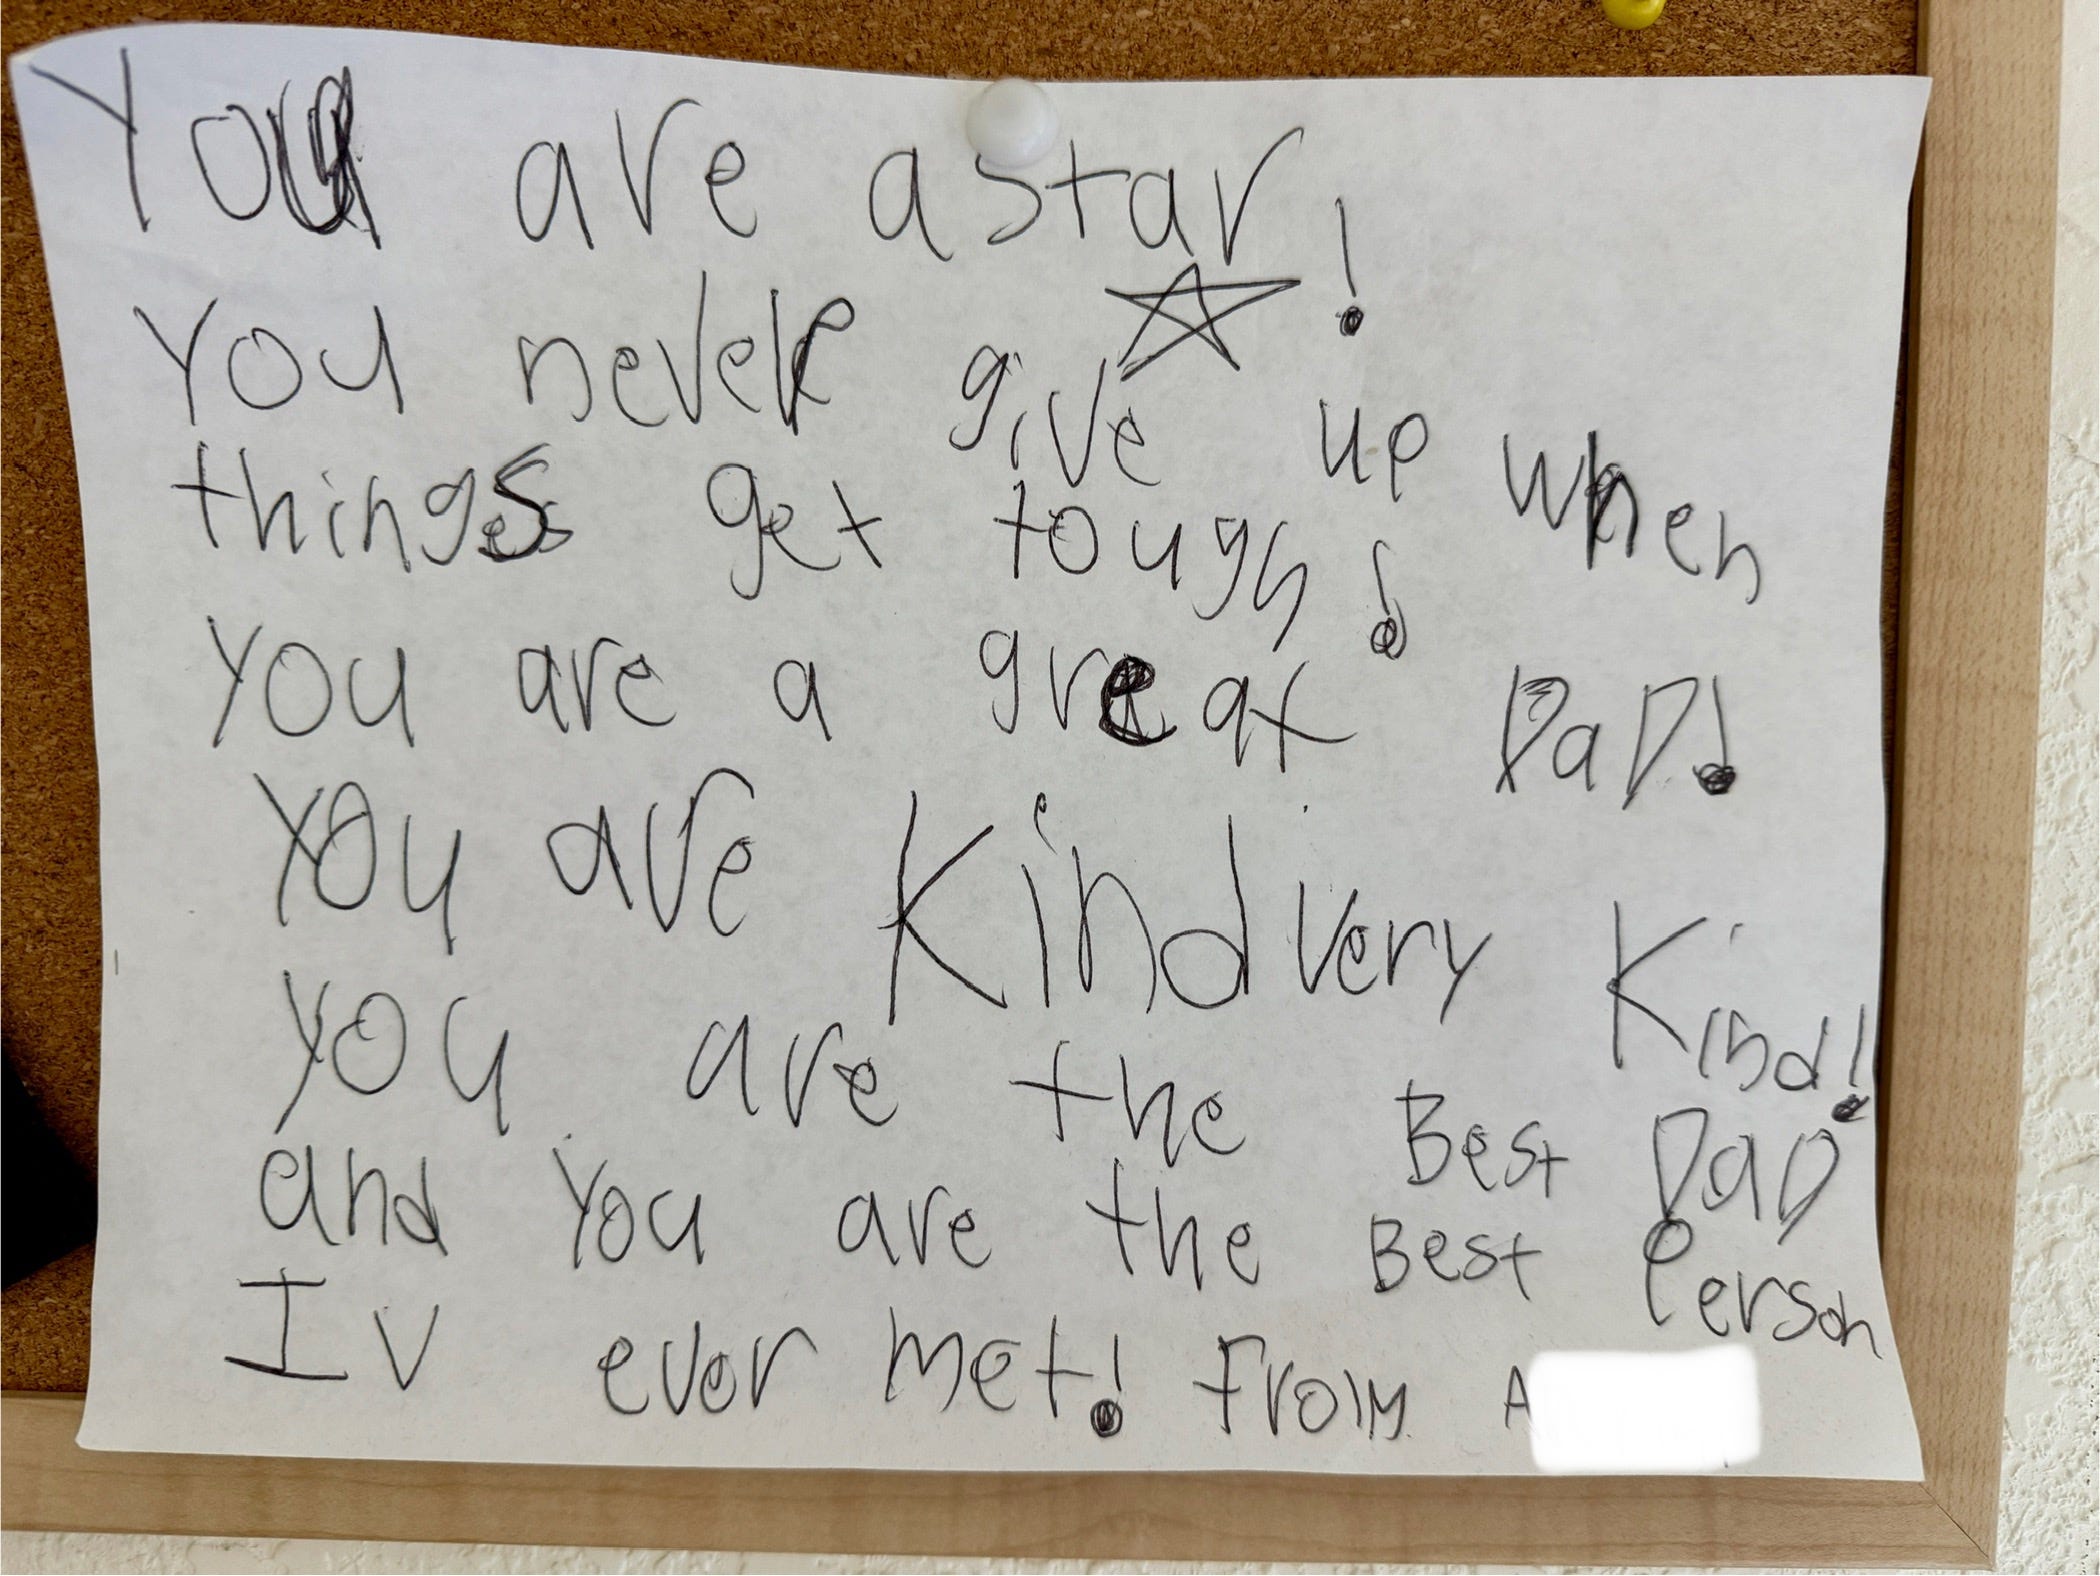 You are a star!
You never give up when
things get tough!
You are a great DaD!
You are Kind very Kind!
You are the Best DaD
and You are the Best Person
Iv ever met! From A